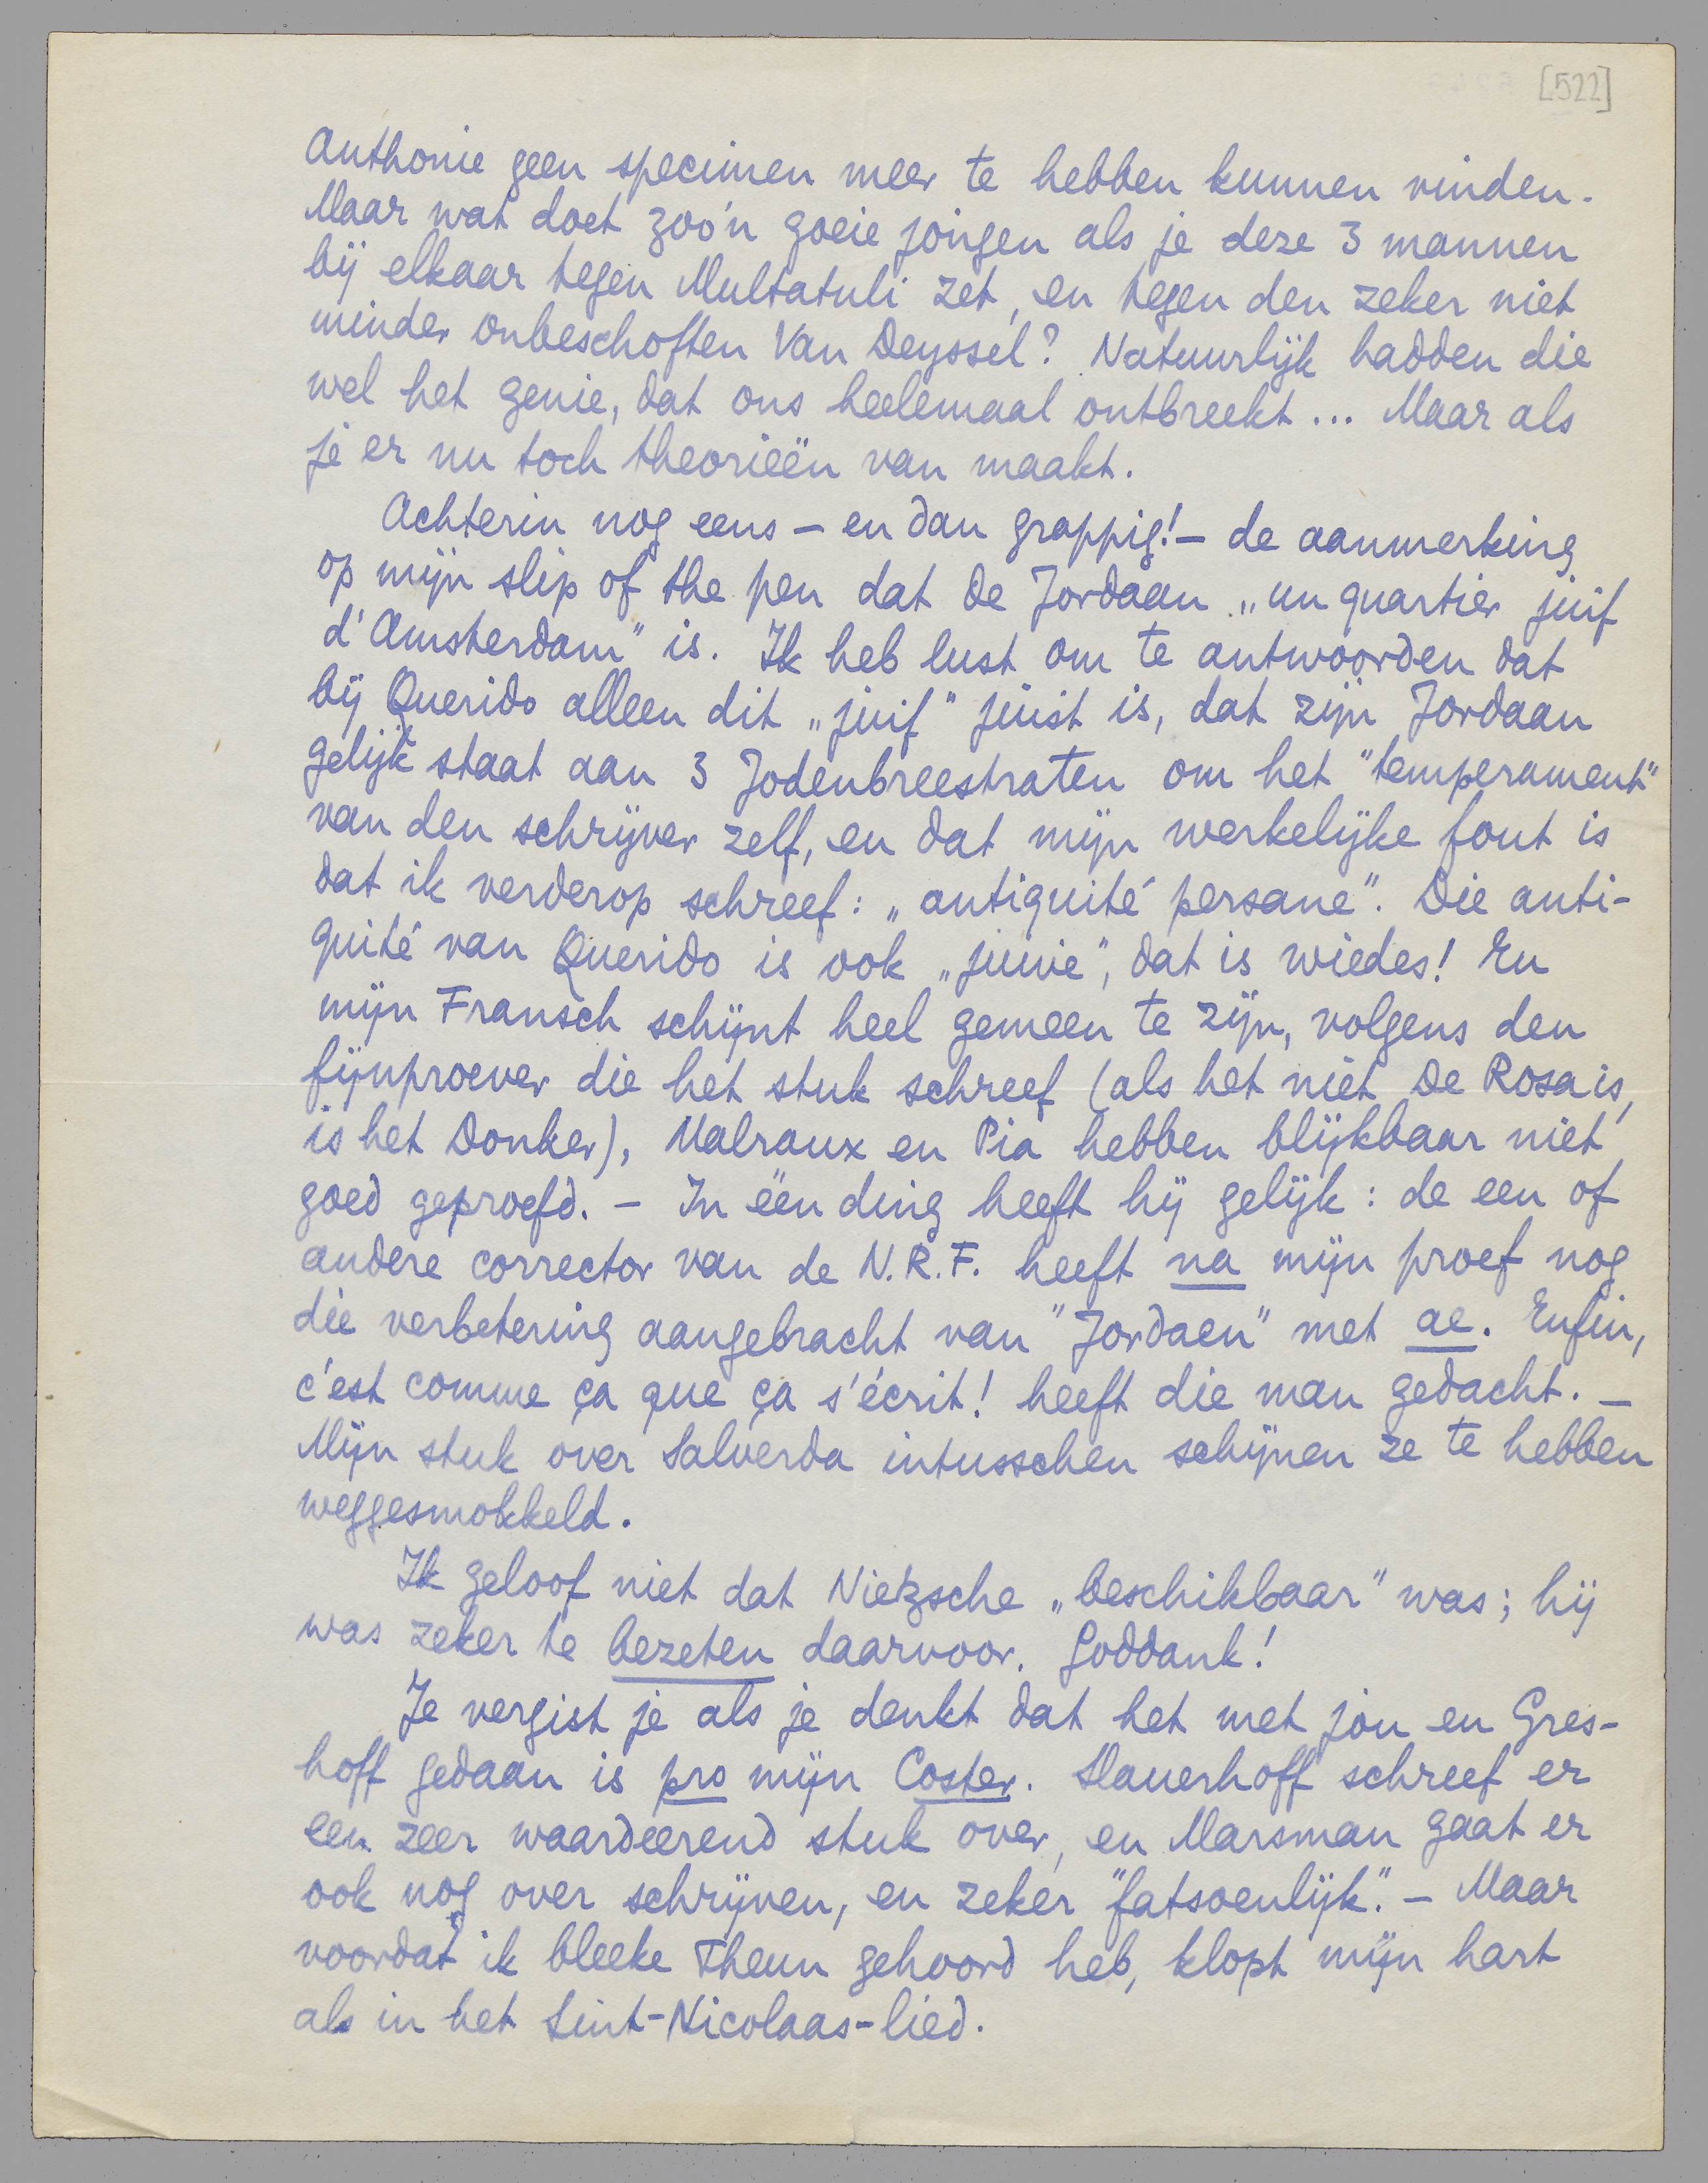 [522]
Anthonie geen specimen meer te hebben kunnen vinden.
Maar wat doet zoo'n goeie jongen als je deze 3 mannen
bij elkaar tegen Multatuli zet, en tegen den zeker niet
minder onbeschoften Van Deyssel? Natuurlijk hadden die
wel het genie, dat ons heelemaal ontbreekt... Maar als
je er nu toch theorieën van maakt.
Achterin nog eens – en dan grappig! – de aanmerking
op mijn slip of the pen dat de Jordaan „un quartier juif
d'Amsterdam" is. Ik heb lust om te antwoorden dat
bij Querido alleen dit „juif" juist is, dat zijn Jordaan
gelijk staat aan 3 Jodenbreestraten om het "temperament"
van den schrijver zelf, en dat mijn werkelijke fout is
dat ik verderop schreef: „antiquité persane". Die anti-
quité van Querido is ook „juive", dat is wiedes! En
mijn Fransch schijnt heel gemeen te zijn, volgens den
fijnproever die het stuk schreef (als het niet De Rosa is,
is het Donker), Malraux en Pia hebben blijkbaar niet
goed geproefd. – In één ding heeft hij gelijk: de een of
andere corrector van de N.R.F. heeft na mijn proef nog
die verbetering aangebracht van "Jordaen" met ae. Enfin,
c'est comme ça que ça s'écrit! heeft die man gedacht. –
Mijn stuk over Salverda intusschen schijnen ze te hebben
weggesmokkeld.
Ik geloof niet dat Nietzsche „beschikbaar" was; hij
was zeker te bezeten daarvoor. Goddank!
Je vergist je als je denkt dat het met jou en Gres-
hoff gedaan is pro mijn Coster. Slauerhoff schreef er
een zeer waardeerend stuk over, en Marsman gaat er
ook nog over schrijven, en zeker "fatsoenlijk". – Maar
voordat ik bleeke Theun gehoord heb, klopt mijn hart
als in het Sint-Nicolaas-lied.